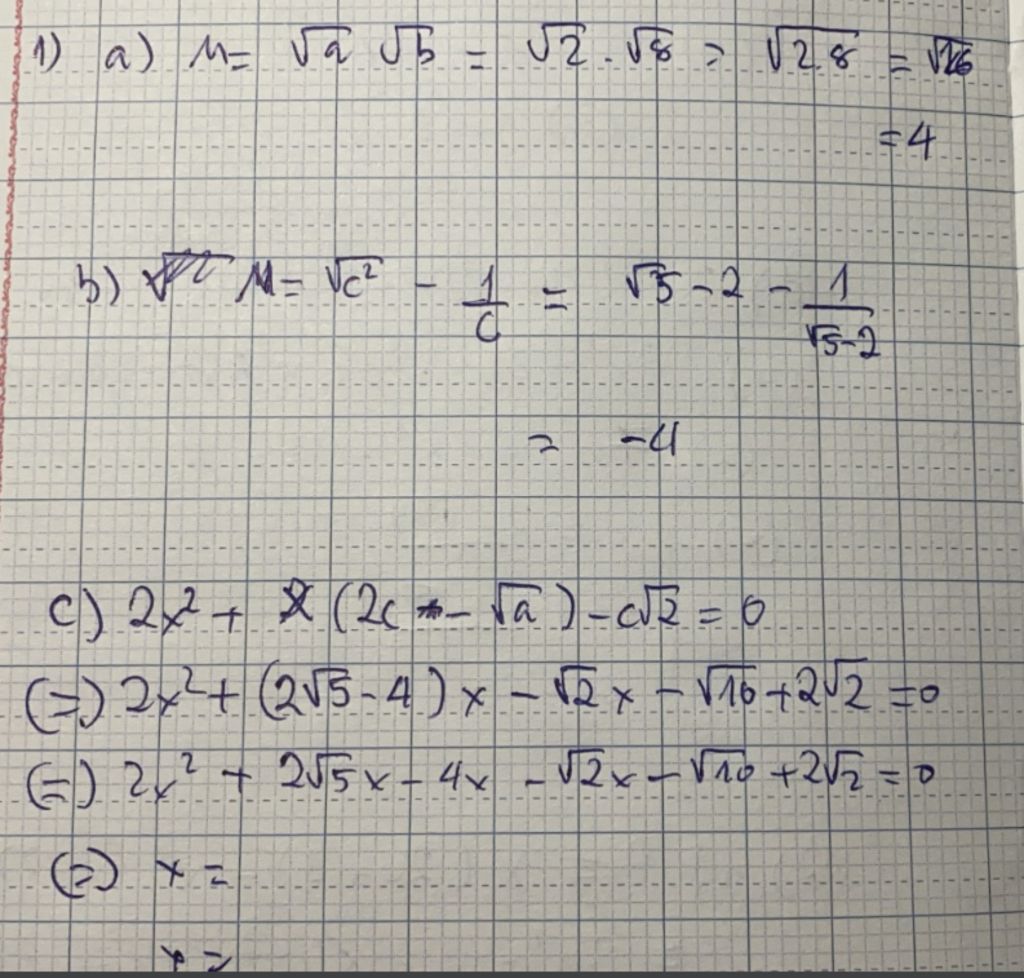 1) a) M= √a √b = √2 . √8 = √2.8 = √16
= 4
b) M= √c² - 1/c = √5 - 2 - 1/(√5-2)
= -4
c) 2x² + x (2c - √a) - c√2 = 0
(=) 2x² + (2√5 - 4) x - √2 x - √10 + 2√2 = 0
(=) 2x² + 2√5 x - 4x - √2 x - √10 + 2√2 = 0
(=) x =
x =